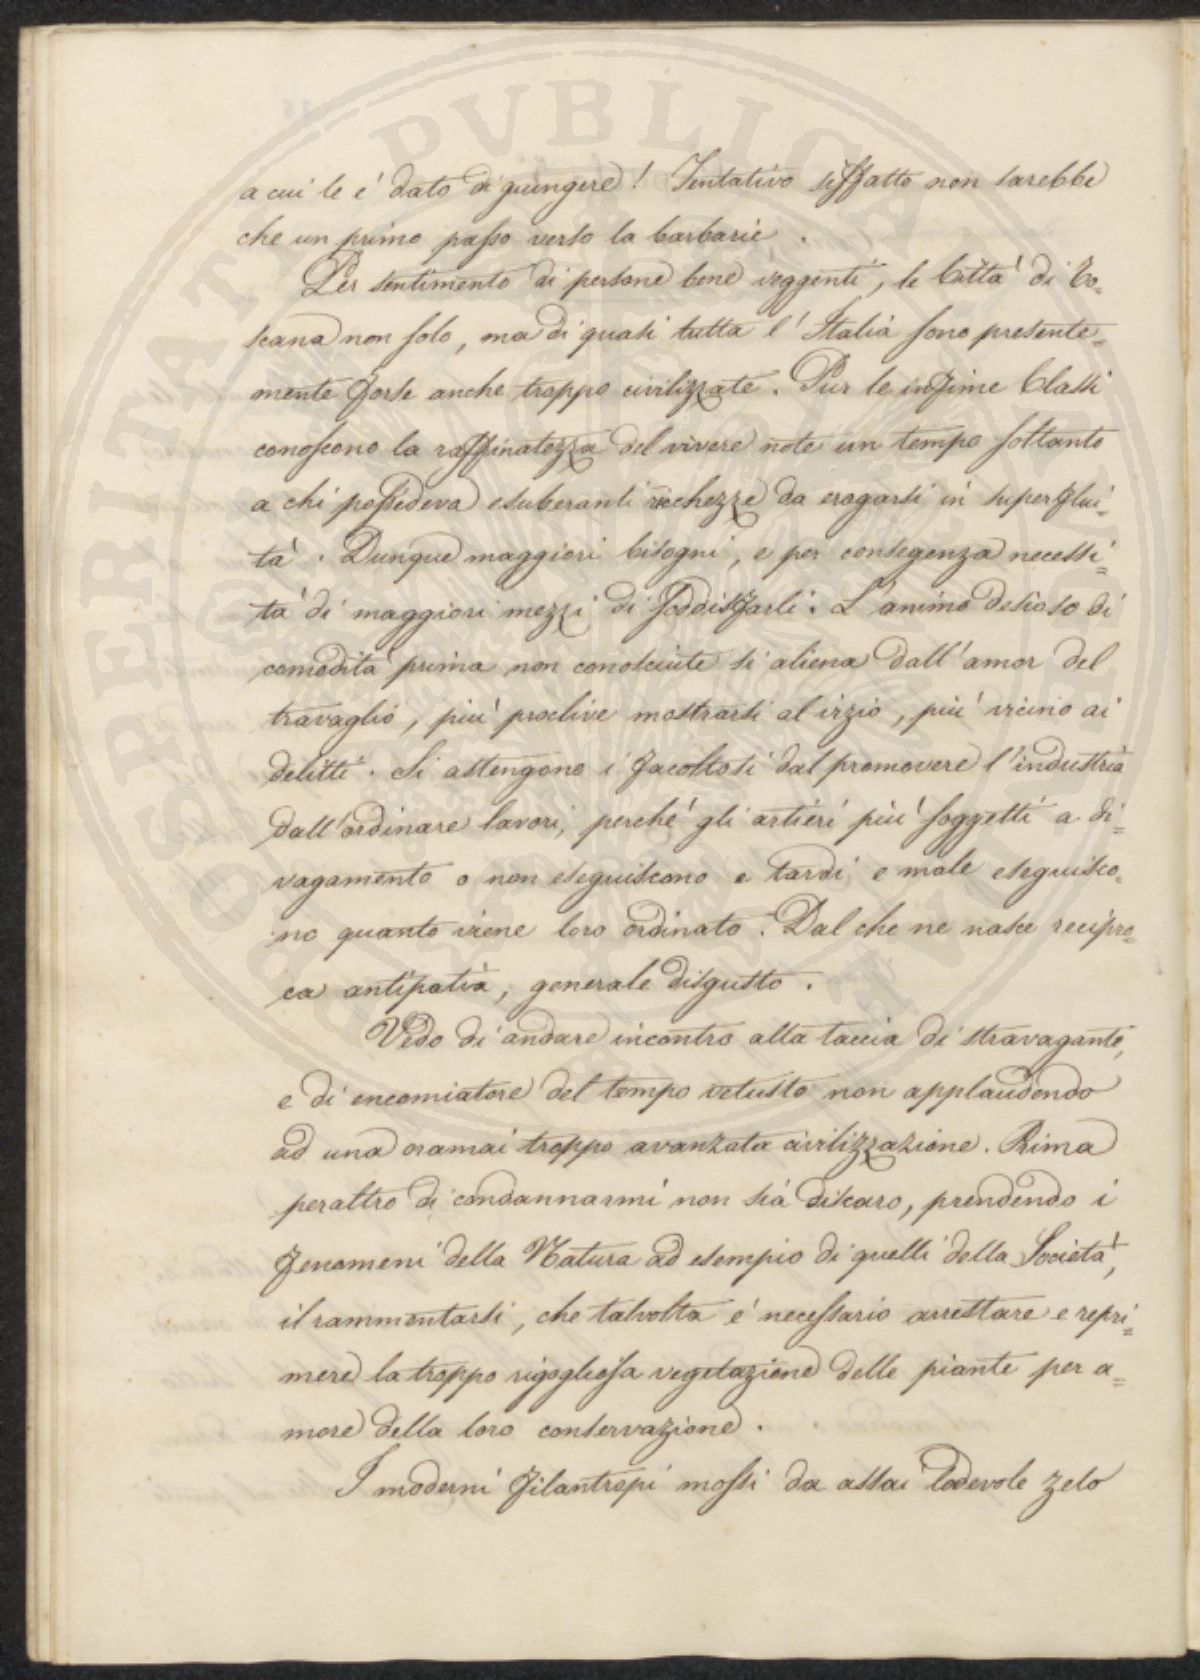 a cui le è dato di giungere! Tentativo siffatto non sarebbe
che un primo passo verso la barbarie.
Per sentimento di persone bene veggenti, le Città di To=
scana non solo, ma di quasi tutta l'Italia sono presente=
mente forse anche troppo civilizzate. Pur le infime Classi
conoscono la raffinatezza del vivere note un tempo soltanto
a chi possedeva esuberanti ricchezze da erogarsi in superflui=
tà. Dunque maggiori bisogni, e per consegenza necessi=
tà di maggiori mezzi di soddisfarli. L'animo desioso di
comodità prima non conosciute si aliena dall'amor del
travaglio, più proclive mostrarsi al vizio, più vicino ai
delitti. Si astengono i facoltosi dal promovere l'industria
dall'ordinare lavori, perché gli artieri più soggetti a di=
vagamento o non eseguiscono e tardi e male eseguisco=
no quanto viene loro ordinato. Dal che ne nasce recipro=
ca antipatia, generale disgusto.
Vedo di andare incontro alla taccia di stravagante,
e di encomiatore del tempo vetusto non applaudendo
ad una oramai troppo avanzata civilizzazione. Prima
peraltro di condannarmi non sia discaro, prendendo i
fenomeni della Natura ad esempio di quelli della Società,
il rammentarsi, che talvolta è necessario arrestare e repri=
mere la troppo rigogliosa vegetazione delle piante per a=
more della loro conservazione.
I moderni filantropi mossi da assai lodevole zelo